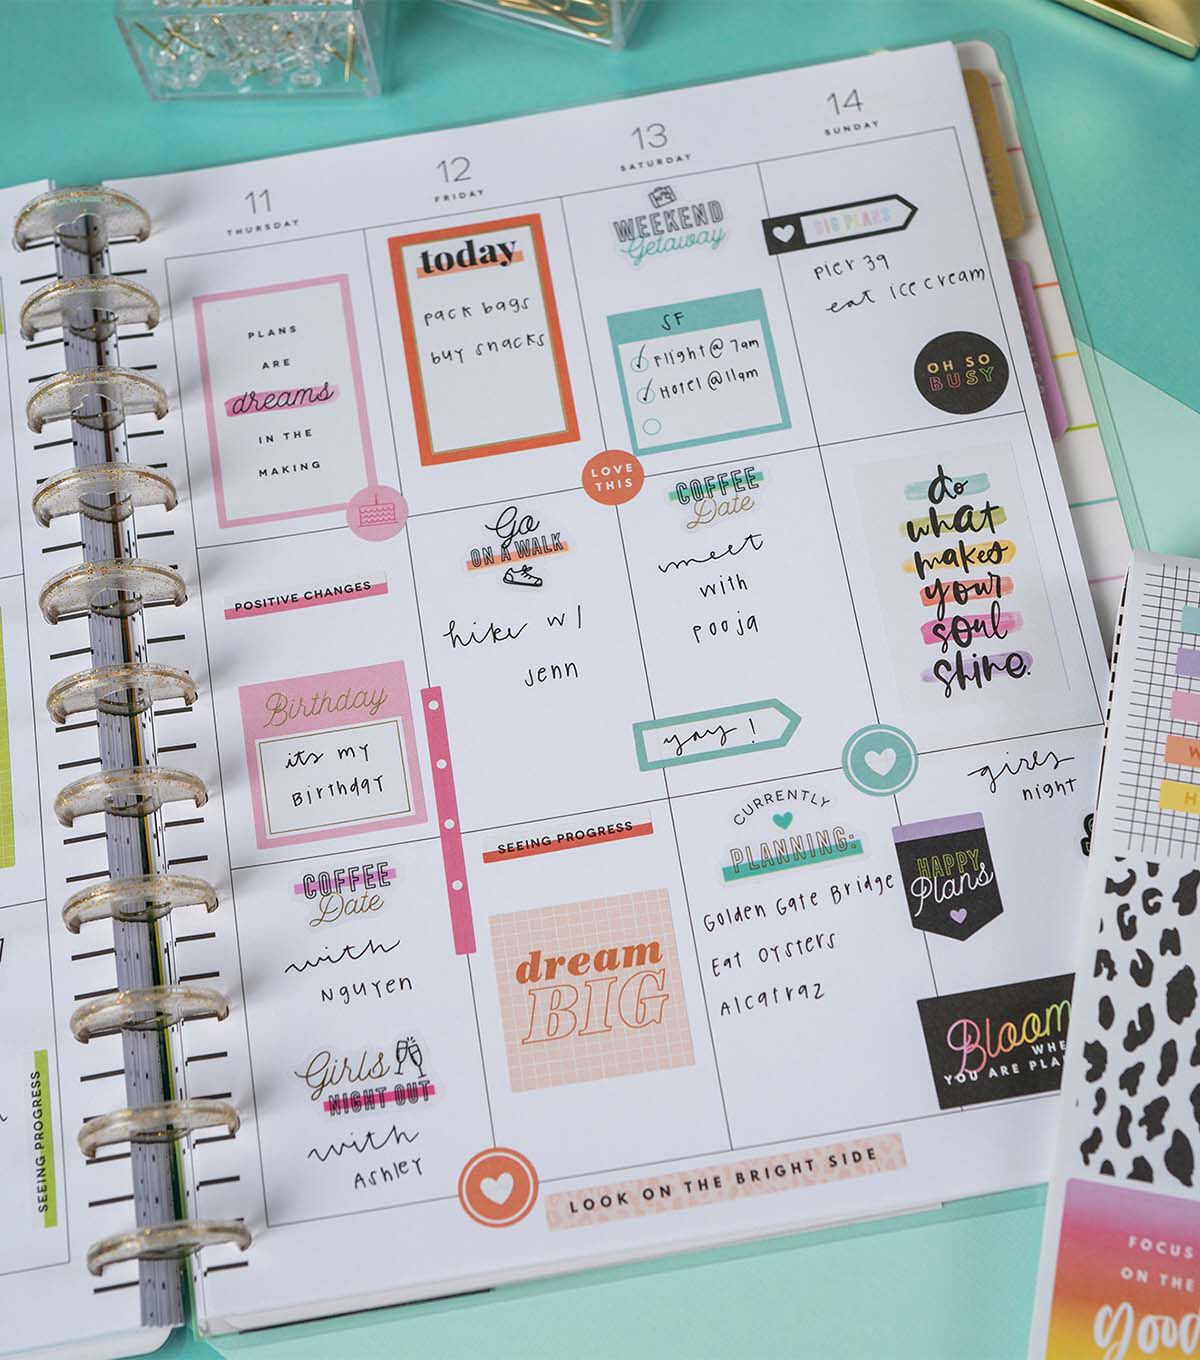 11
THURSDAY
PLANS
ARE
dreams
IN THE
MAKING
POSITIVE CHANGES
Birthday
its my
Birthday
COFFEE
Date
with
Nguyen
Girls
NIGHT OUT
with
Ashley
12
FRIDAY
today
pack bags
buy snacks
LOVE
THIS
Go
ON A WALK
hike w/
Jenn
SEEING PROGRESS
dream
BIG
13
SATURDAY
WEEKEND
Getaway
SF
Flight @ 7am
Hotel @ 11am
COFFEE
Date
meet
with
pooja
yay!
CURRENTLY
PLANNING:
Golden Gate Bridge
Eat Oysters
Alcatraz
14
SUNDAY
BIG PLANS
pier 39
eat ice cream
OH SO
BUSY
do
what
makes
your
soul
shine.
girls
night
HAPPY
Plans
Bloom
WHE
YOU ARE PLA
LOOK ON THE BRIGHT SIDE
SEEING PROGRESS
W
H
FOCUS
ON THE
good